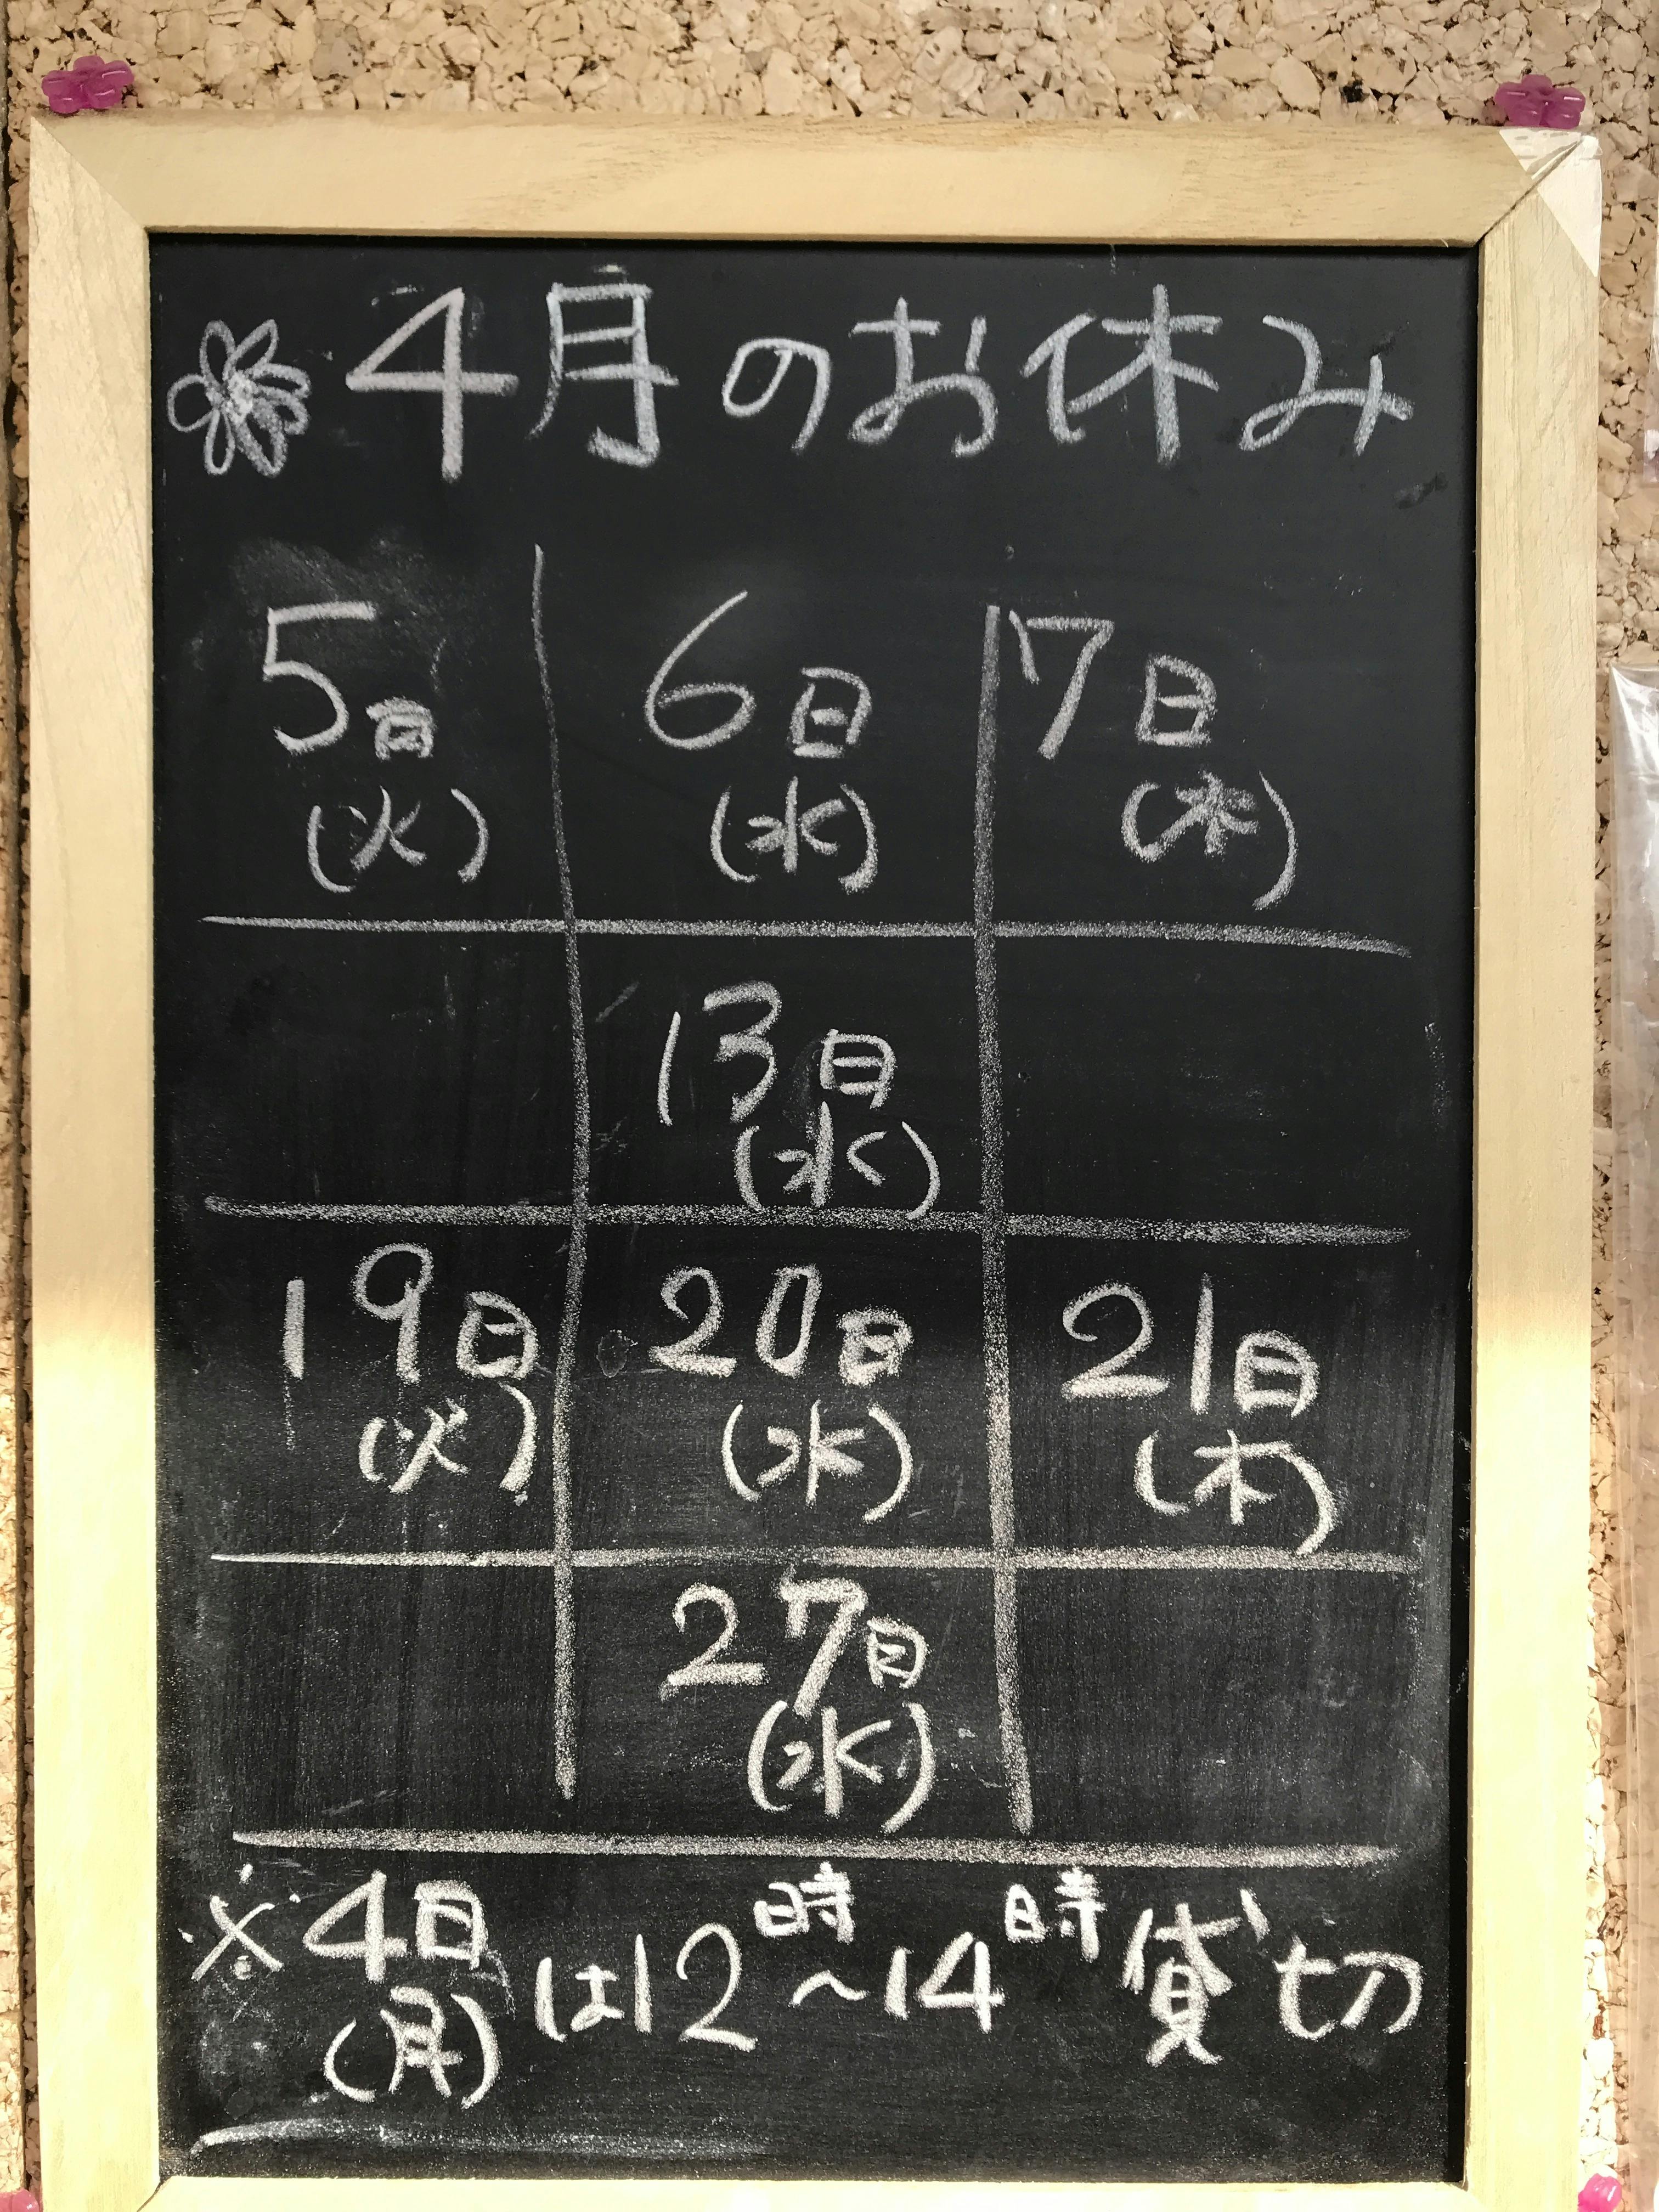 4月のお休み
5日 6日 7日
(火) (水) (木)
13日
(水)
19日 20日 21日
(火) (水) (木)
27日
(水)
※4日は12時〜14時貸切
(月)